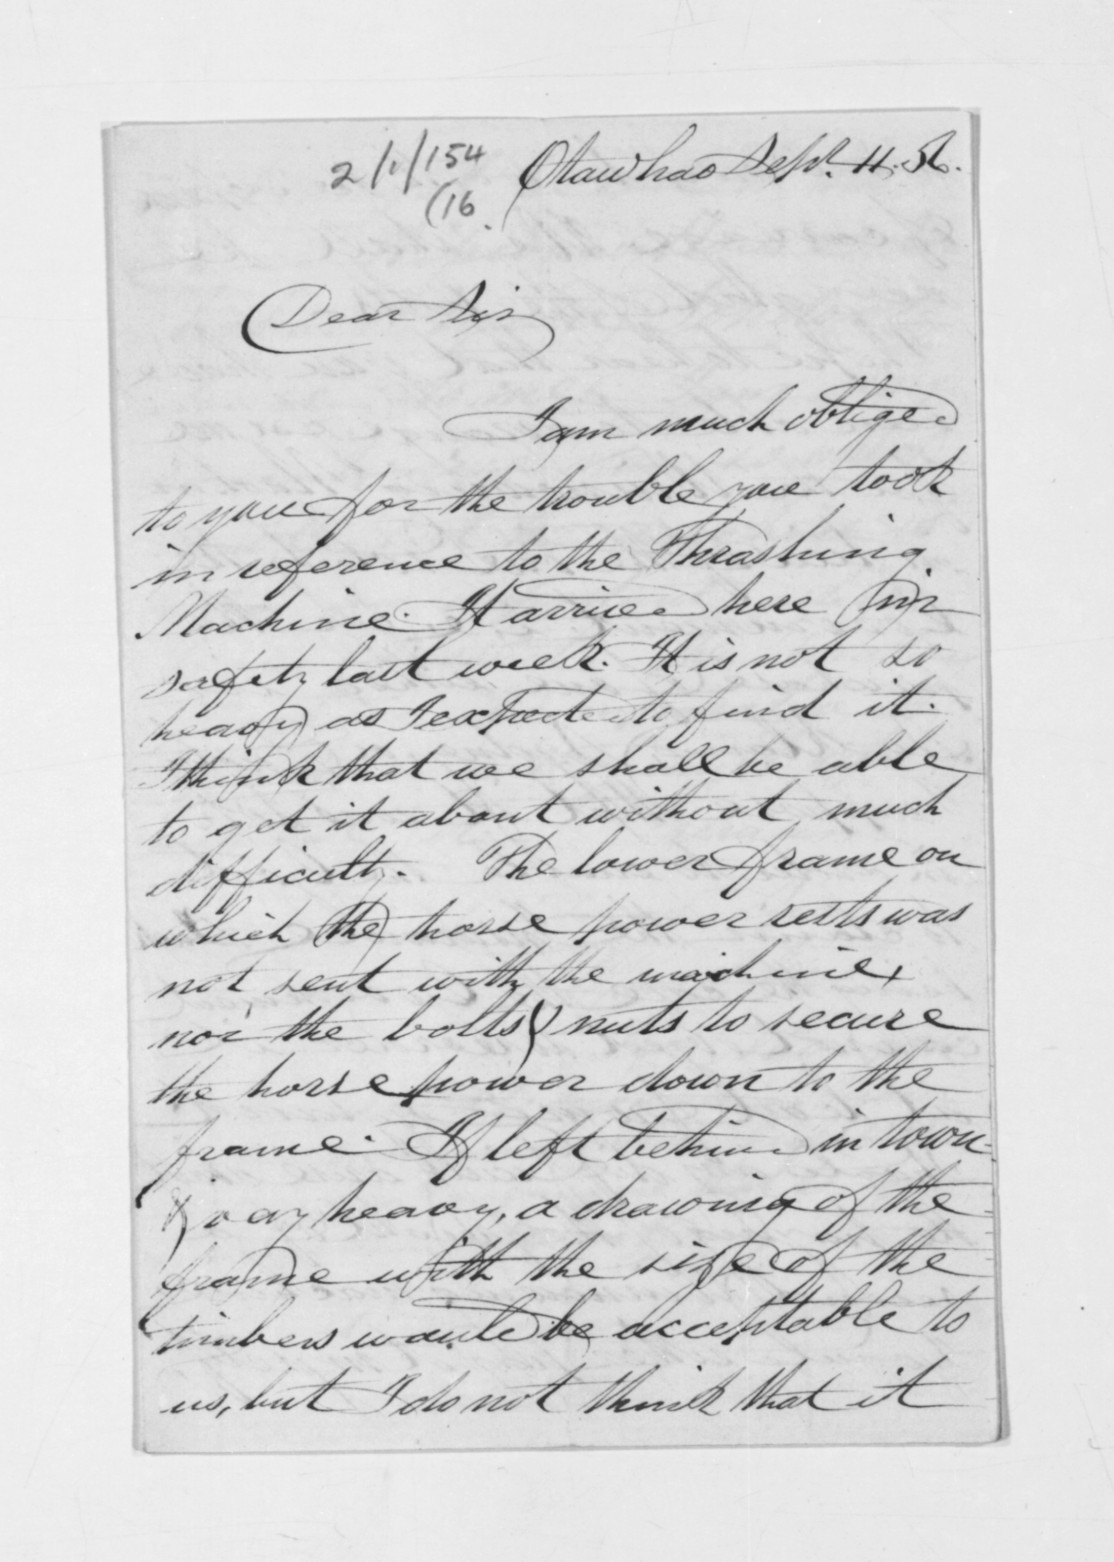 2/1/154
(16
Otawhao Sept. 11. 56.
Dear Sir
I am much obliged
to you for the trouble you took
in reference to the Thrashing
Machine. It arrived here in
safety last week. It is not so
heavy as I expected to find it.
I think that we shall be able
to get it about without much
difficulty. The lower frame on
which the horse power rests was
not sent with the machine,
nor the bolts & nuts to secure
the horse power down to the
frame. If left behind in town
& very heavy, a drawing of the
frame with the size of the
timbers would be acceptable to
us, but I do not think that it